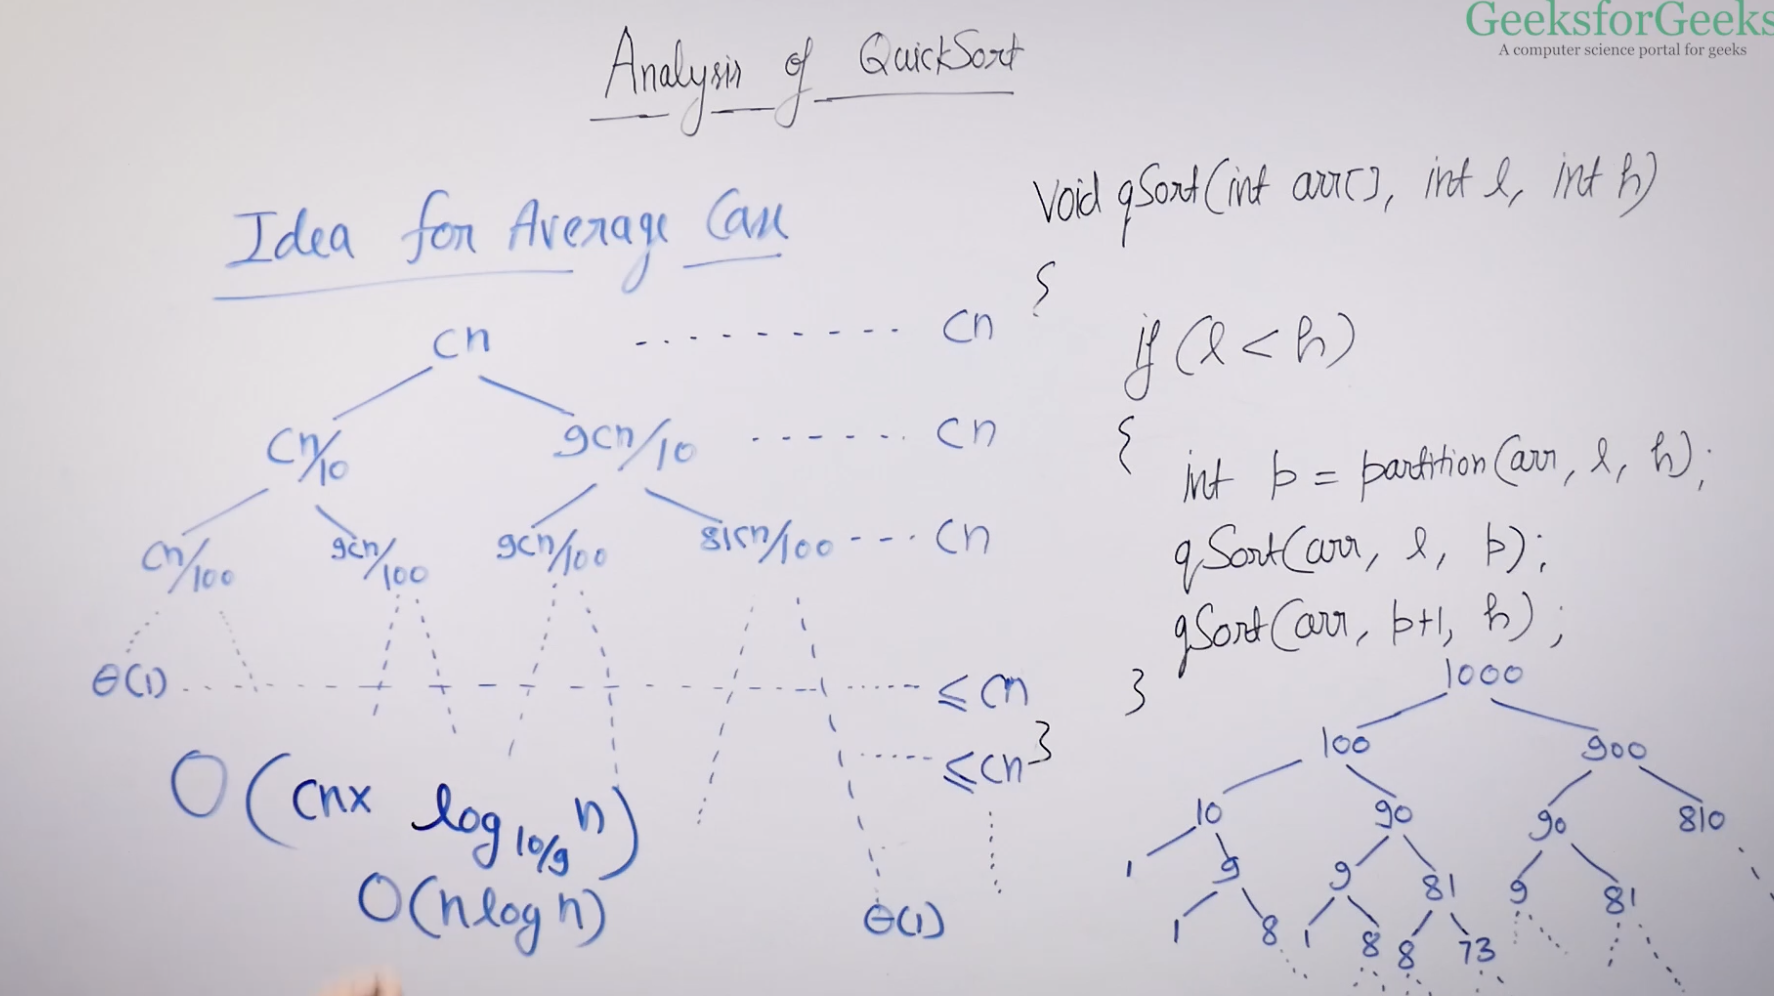 GeeksforGeeks
A computer science portal for geeks
Analysis of QuickSort
Idea for Average Case
cn - - - - - - - - cn
cn/10 9cn/10 - - - - - - cn
cn/100 9cn/100 9cn/100 81cn/100 - - - cn
θ(1) - - - - - - - - ≤ cn
≤ cn
O(cn x log10/9 n)
O(n log n)
θ(1)
void qSort(int arr[], int l, int h)
{
if (l < h)
{
int p = partition(arr, l, h);
qSort(arr, l, p);
qSort(arr, p+1, h);
}
}
1000
100 900
10 90 90 810
1 9 9 81 9 81
1 8 1 8 8 73